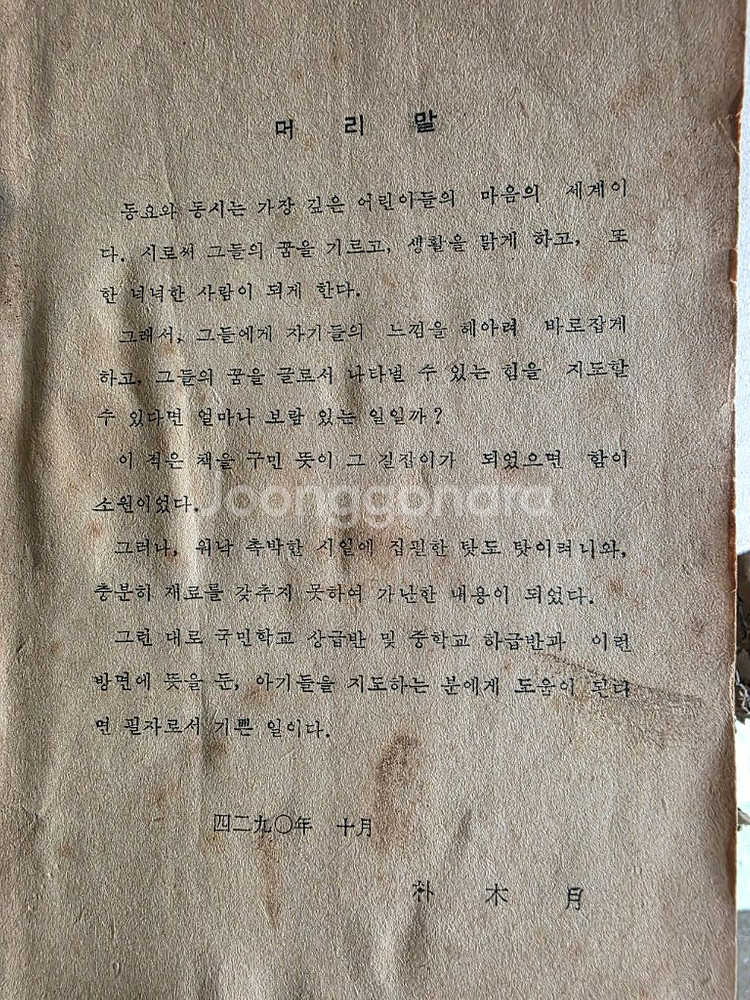 머 리 말
동요와 동시는 가장 깊은 어린이들의 마음의 세계이
다. 시로써 그들의 꿈을 기르고, 생활을 맑게 하고, 또
한 넉넉한 사람이 되게 한다.
그래서, 그들에게 자기들의 느낌을 헤아려 바로잡게
하고, 그들의 꿈을 글로서 나타낼 수 있는 힘을 지도할
수 있다면 얼마나 보람 있는 일일까?
이 적은 책을 꾸민 뜻이 그 길잡이가 되었으면 함이
소원이었다.
Joonggonara
그러나, 워낙 촉박한 시일에 집필한 탓도 탓이려니와,
충분히 재료를 갖추지 못하여 가난한 내용이 되었다.
그런 대로 국민학교 상급반 및 중학교 하급반과 이런
방면에 뜻을 둔, 아기들을 지도하는 분에게 도움이 된다
면 필자로서 기쁜 일이다.
四二九〇年 十月
朴 木 月